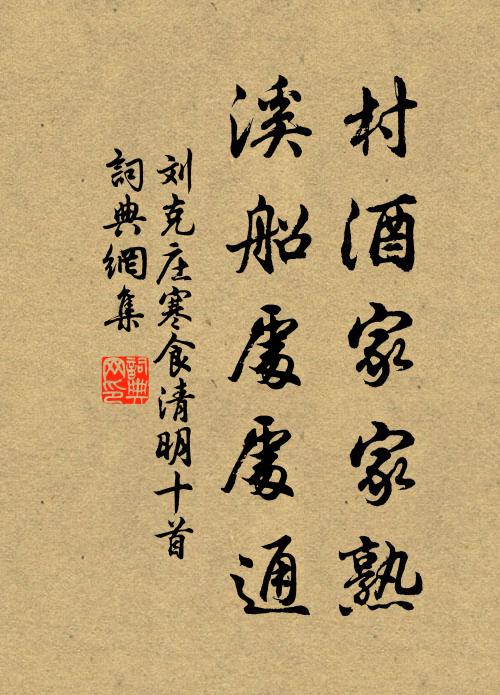 村酒家家熟
溪船處處通
刘克庄寒食清明十首
詞典網集
詞典網印